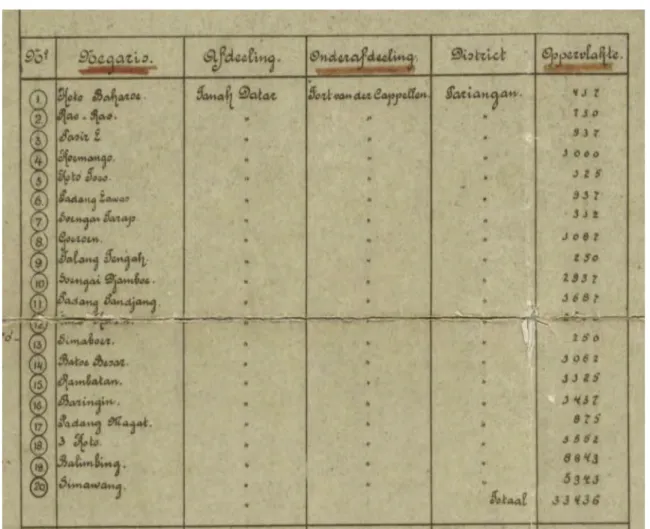 No Negaris. Afdeeling. Onderafdeeling. District Oppervlakte.
1 Koto Baharoe. Tanah Datar Fort van der Cappellen. Pariangan. 437
2 Rao-Rao. " " " 750
3 Pasir L " " " 937
4 " " " 3060
5 Koto " " " 325
6 Padang Lawas " " " 937
7 Soengai Tarap " " "
8 Goeroen. " " " 3062
9 Talang Tengah. " " " 250
10 Soengai Djamboe. " " " 2937
11 Padang Pandjang. " " " 3687
12 " " "
13 Simaboer. " " " 250
14 Batoe Besar. " " " 3062
15 Rambatan. " " " 3325
16 Baringin. " " " 3437
17 Padang Magat. " " " 875
18 3 Koto. " " "
19 Balimbing. " " "
20 Simawang. " " "
" Totaal 33436